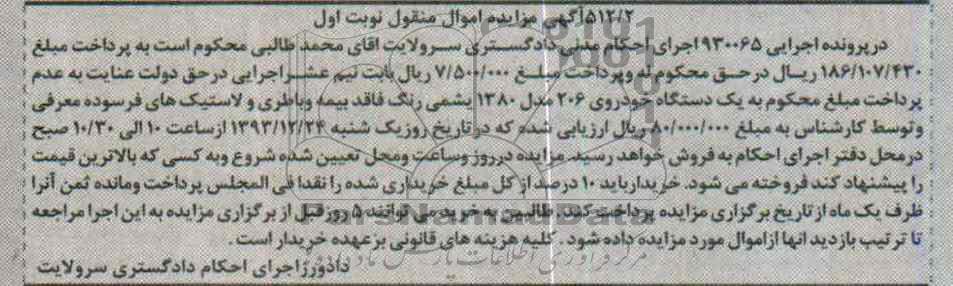 ۵۱۲/۲آگهی مزایده اموال منقول نوبت اول
درپرونده اجرایی ۹۳۰۰۶۵ اجرای احکام مدنی دادگستری سرولایت اقای محمد طالبی محکوم است به پرداخت مبلغ
۱۸۶/۱۰۷/۴۳۰ ریال درحق محکوم له وپرداخت مبلغ ۷/۵۰۰/۰۰۰ ریال بابت نیم عشراجرایی درحق دولت عنایت به عدم
پرداخت مبلغ محکوم به یک دستگاه خودروی ۲۰۶ مدل ۱۳۸۰ یشمی رنگ فاقد بیمه وباطری و لاستیک های فرسوده معرفی
وتوسط کارشناس به مبلغ ۸۰/۰۰۰/۰۰۰ ریال ارزیابی شده که درتاریخ روزیک شنبه ۱۳۹۳/۱۲/۲۴ ازساعت ۱۰ الی ۱۰/۳۰ صبح
درمحل دفتر اجرای احکام به فروش خواهد رسید. مزایده درروز وساعت ومحل تعیین شده شروع وبه کسی که بالاترین قیمت
را پیشنهاد کند فروخته می شود. خریدارباید ۱۰ درصد از کل مبلغ خریداری شده را نقدا فی المجلس پرداخت ومانده ثمن آنرا
ظرف یک ماه ازتاریخ برگزاری مزایده پرداخت کند. طالبین به خرید می توانند ۵ روزقبل از برگزاری مزایده به این اجرا مراجعه
تا ترتیب بازدید انها ازاموال مورد مزایده داده شود. کلیه هزینه های قانونی برعهده خریدار است.
دادورزاجرای احکام دادگستری سرولایت
ParsNamadData